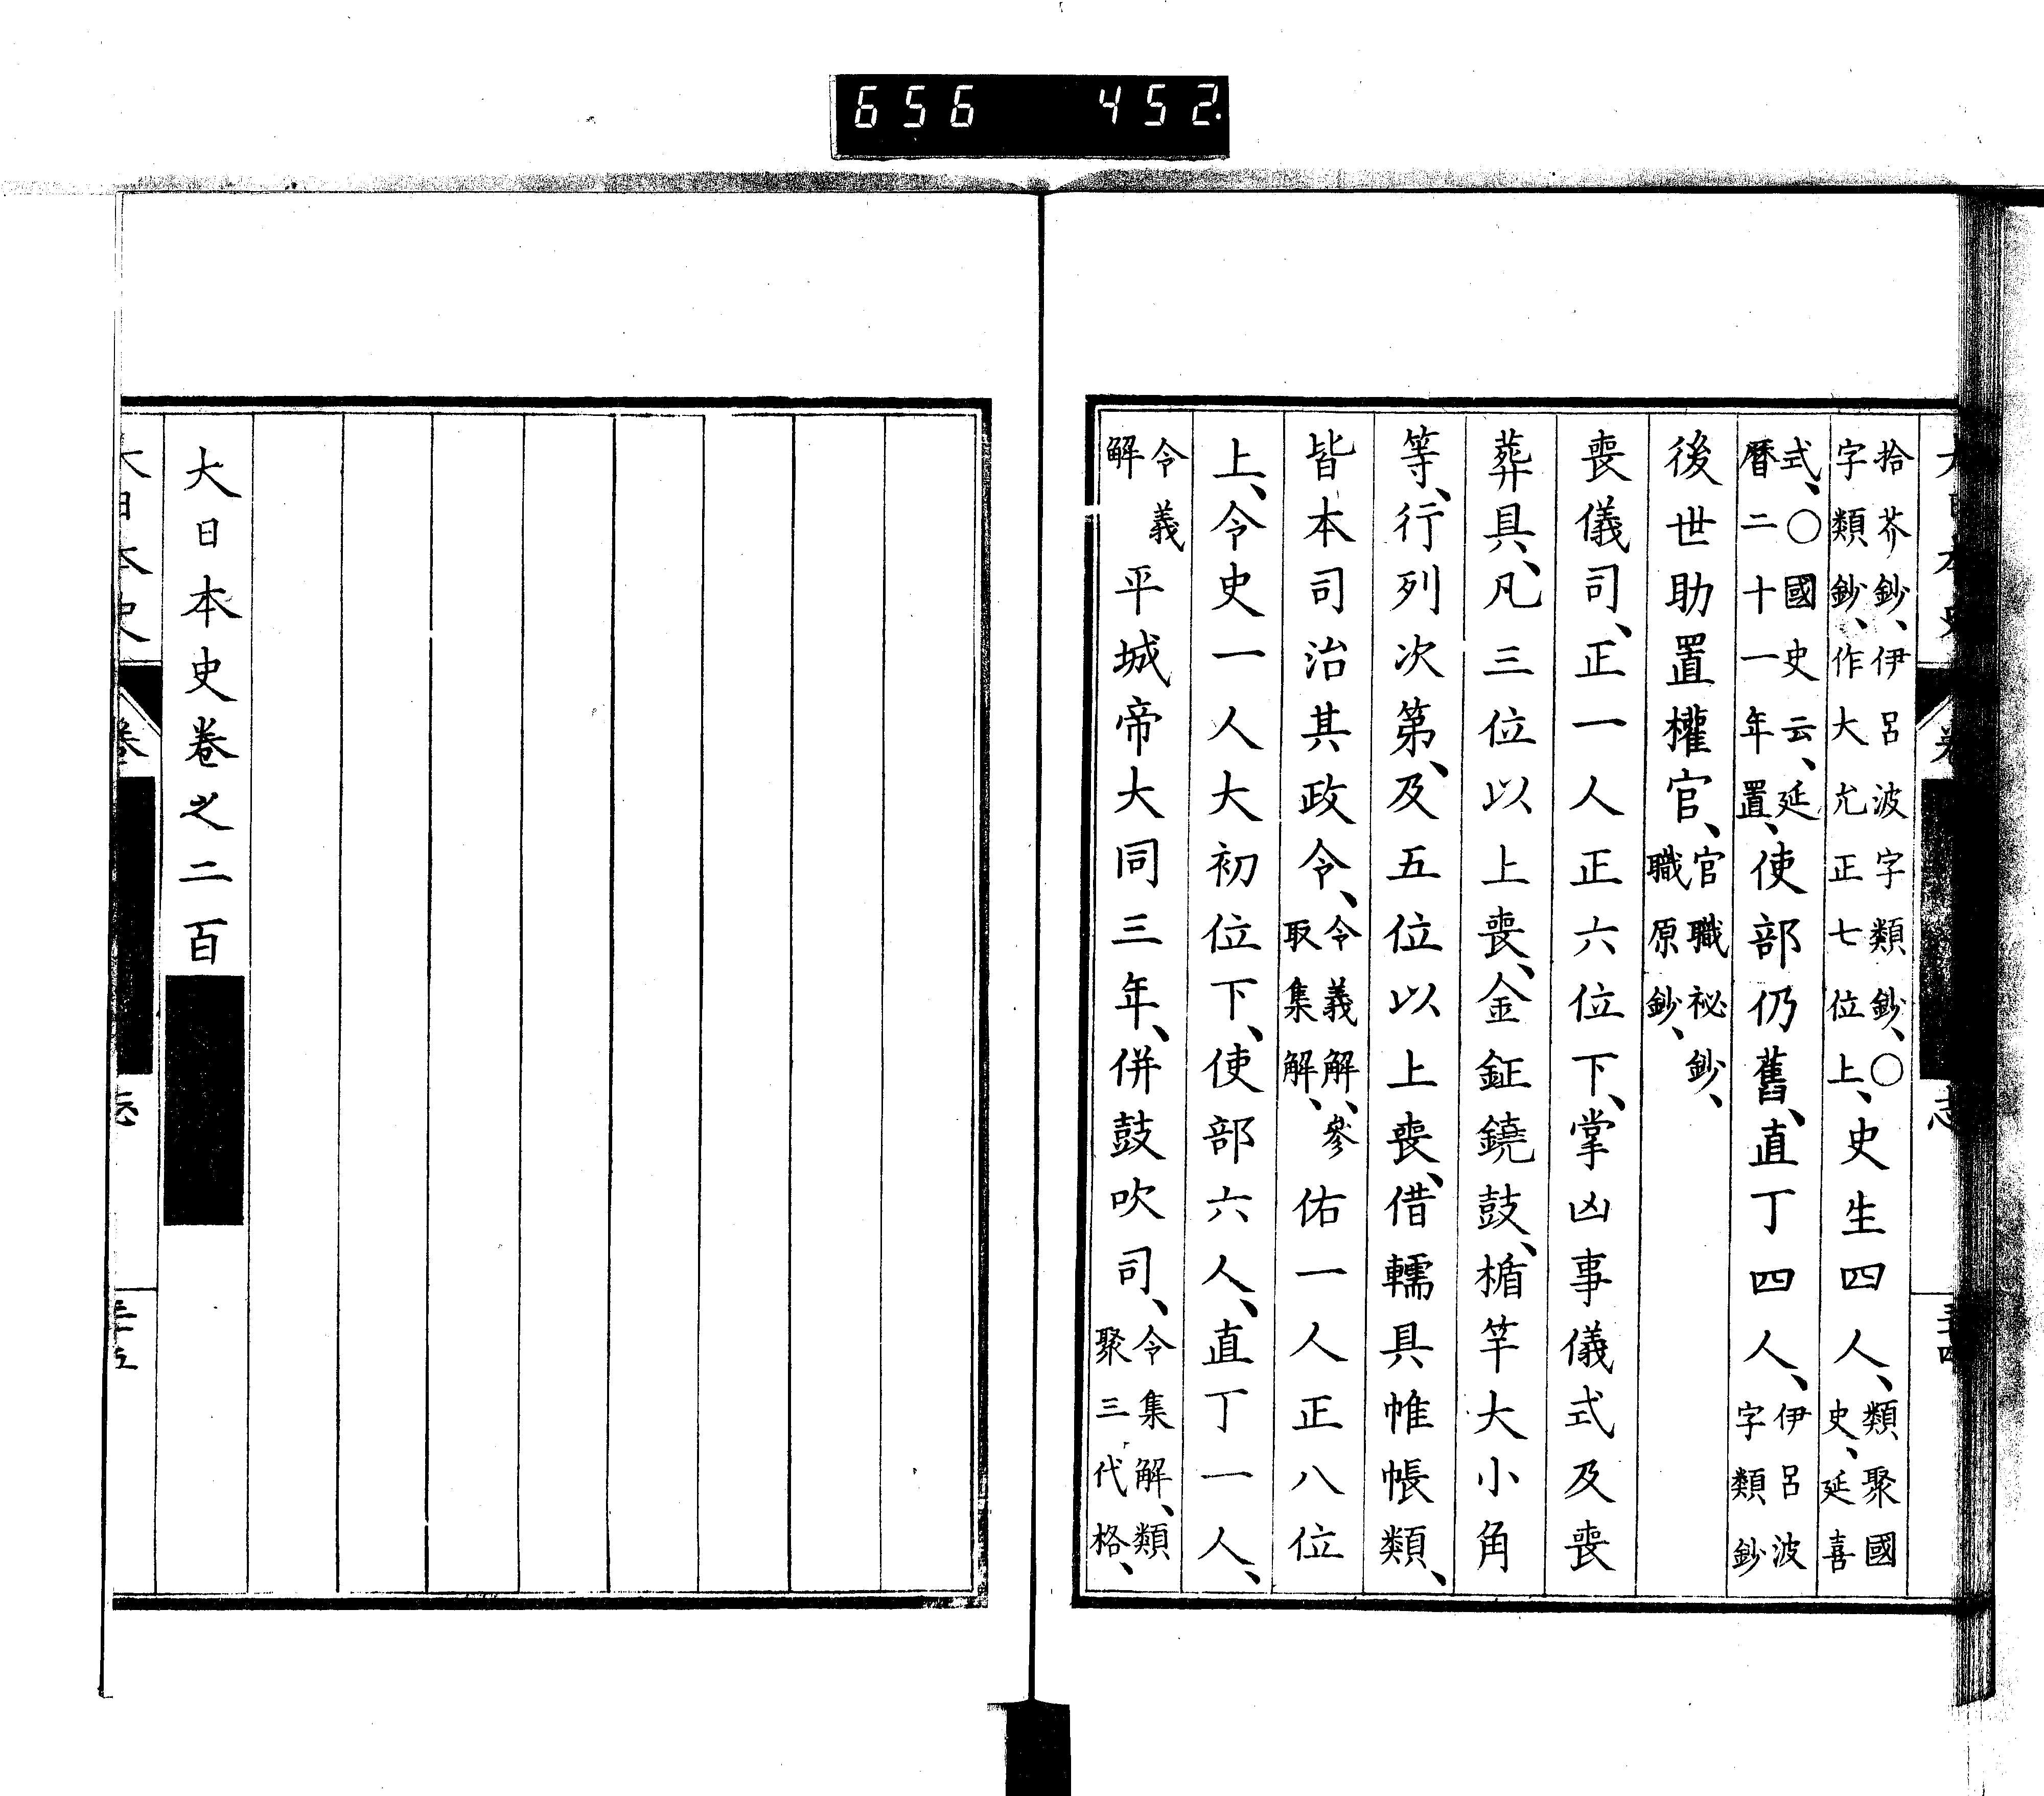 656 452.
拾芥鈔、伊呂波字類鈔、○
字類鈔、作大尤正七位上、史生四人、類聚國
史、延喜
式、○國史云、延
曆二十一年置、使部仍舊、直丁四人、伊呂波
字類鈔
後世助置權官、官職祕鈔、
職原鈔、
喪儀司、正一人正六位下、掌凶事儀式及喪
葬具、凡三位以上喪、金鉦鐃鼓、楯竿大小角
等、行列次第、及五位以上喪、借轜具帷帳類、
皆本司治其政令、令義解、參
取集解、佑一人正八位
上、令史一人大初位下、使部六人、直丁一人、
令義
解平城帝大同三年、併鼓吹司、令集解、類
聚三代格、
大日本史卷之二百
大日本史 卷 志 三十五